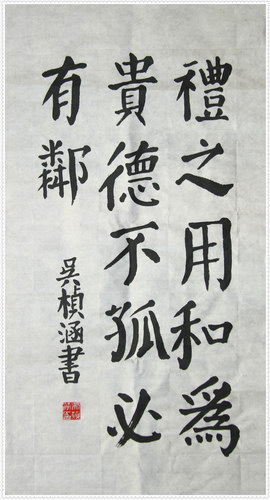 禮之用和為
貴德不孤必
有鄰
吳楨涵書